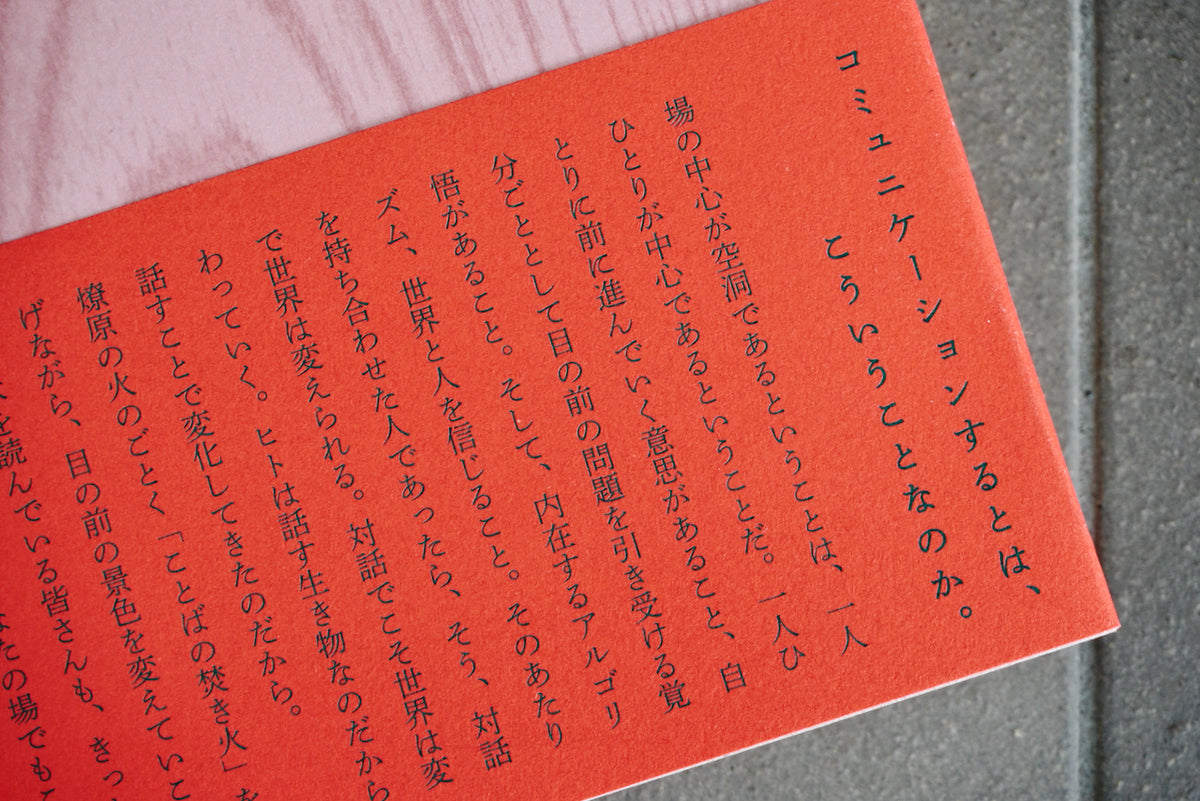 コミュニケーションするとは、
こういうことなのか。
場の中心が空洞であるということは、一人
ひとりが中心であるということだ。一人ひ
とりに前に進んでいく意思があること、自
分ごととして目の前の問題を引き受ける覚
悟があること。そして、内在するアルゴリ
ズム、世界と人を信じること。そのあたり
を持ち合わせた人であったら、そう、対話
で世界は変えられる。対話でこそ世界は変
わっていく。ヒトは話す生き物なのだから
話すことで変化してきたのだから。
燎原の火のごとく「ことばの焚き火」を
げながら、目の前の景色を変えていこ
を読んでいる皆さんも、きっ
たの場でも